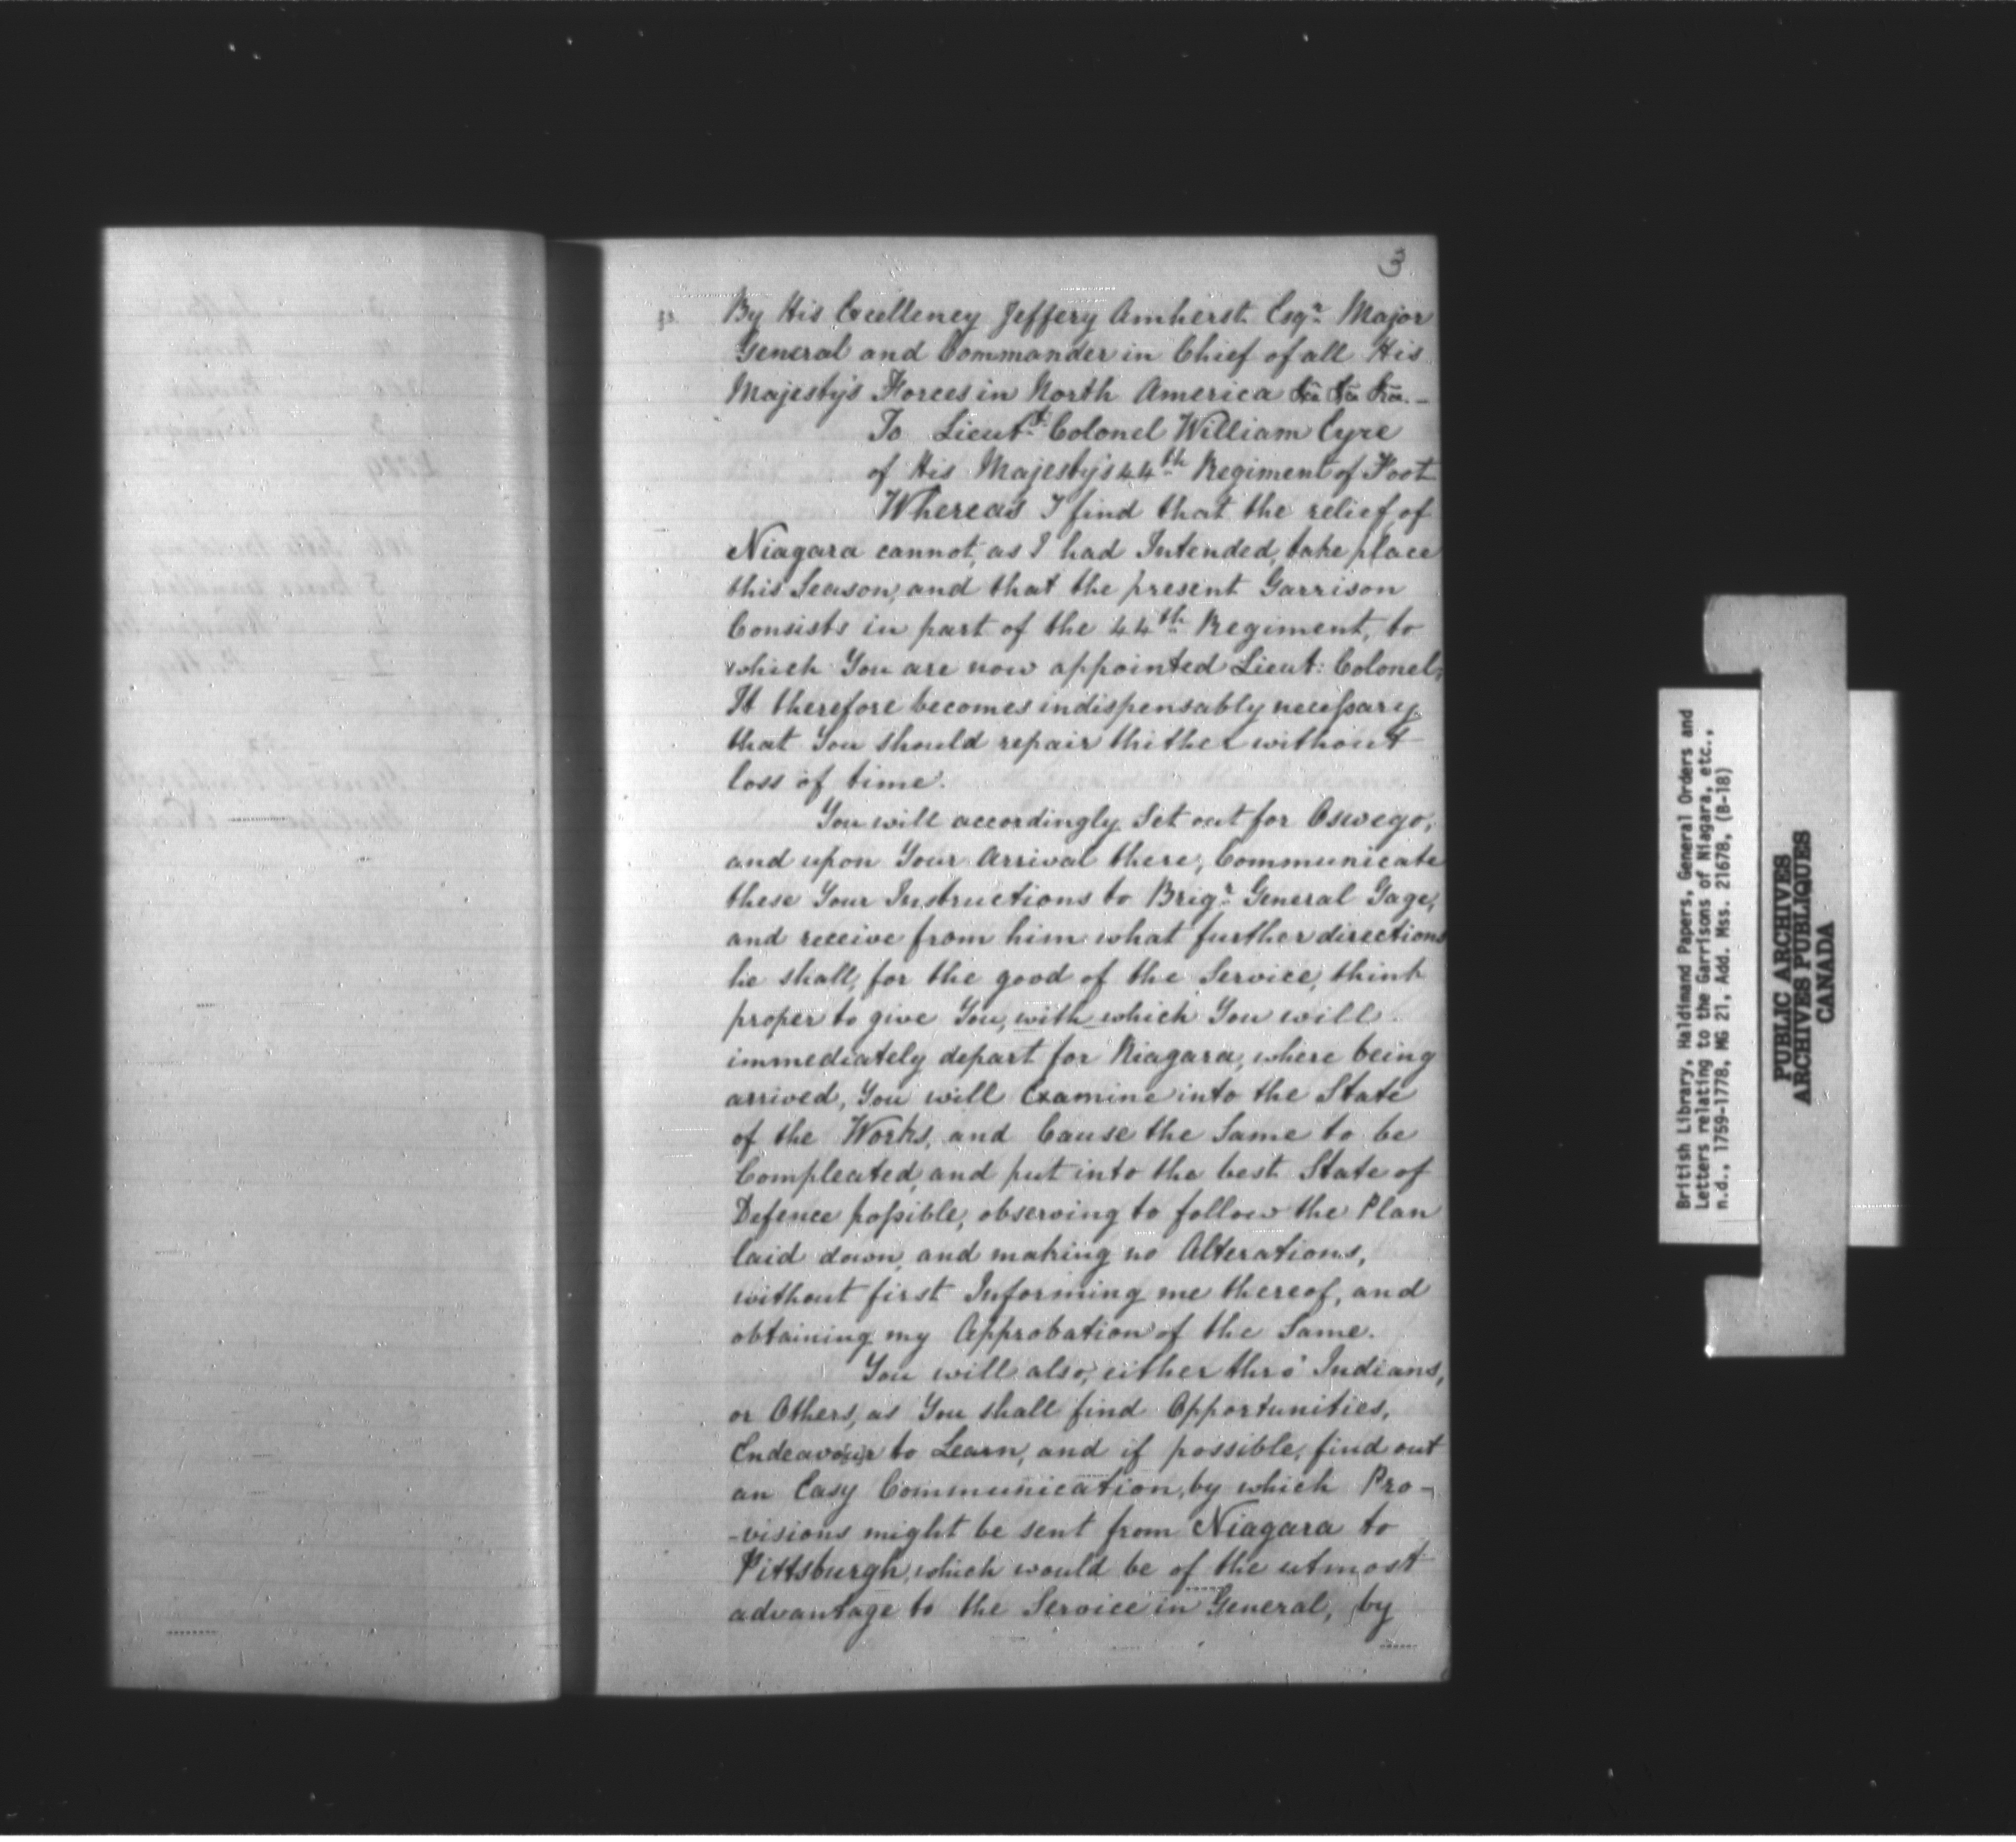 3
By His Excellency Jeffery Amherst Esqr. Major
General and Commander in Chief of all His
Majesty's Forces in North America &ca &ca &ca. -
To Lieut.t Colonel William Eyre
of His Majesty's 44th Regiment of Foot
Whereas I find that the relief of
Niagara cannot, as I had Intended, take place
this Season, and that the present Garrison
Consists in part of the 44th Regiment, to
which You are now appointed Lieut: Colonel,
It therefore becomes indispensably necessary
that You should repair thither without
loss of time.
You will accordingly Set out for Oswego,
and upon Your Arrival there, Communicate
these Your Instructions to Brigr. General Gage,
and receive from him what further directions
he shall, for the good of the Service, think
proper to give You, with which You will
immediately depart for Niagara, where being
arrived, You will Examine into the State
of the Works, and Cause the Same to be
Compleated, and put into the best State of
Defence possible, observing to follow the Plan
laid down, and making no Alterations,
without first Informing me thereof, and
obtaining my Approbation of the Same.
You will also, either thro' Indians,
or Others, as You shall find Opportunities,
Endeavour to Learn, and if possible, find out
an Easy Communication, by which Pro-
-visions might be sent from Niagara to
Pittsburgh, which would be of the utmost
advantage to the Service in General, by
British Library, Haldimand Papers, General Orders and
Letters relating to the Garrisons of Niagara, etc.,
n.d., 1759-1778, MG 21, Add. Mss. 21678, (B-18)
PUBLIC ARCHIVES
ARCHIVES PUBLIQUES
CANADA